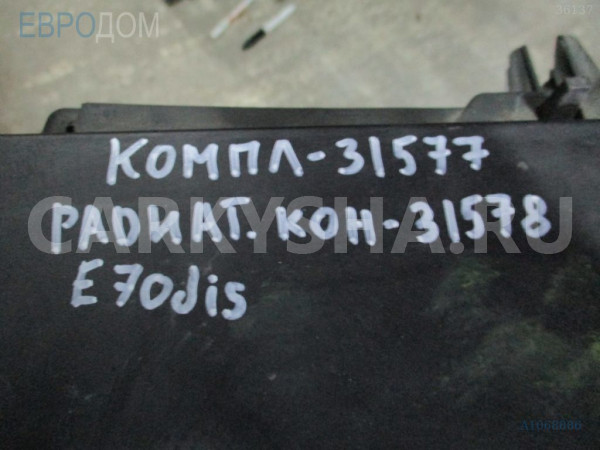 ЕВРОДОМ
36137
КОМПЛ-31577
РАДИАТ.КОН-31578
CARKYSHA.RU
E70dis
A1068686